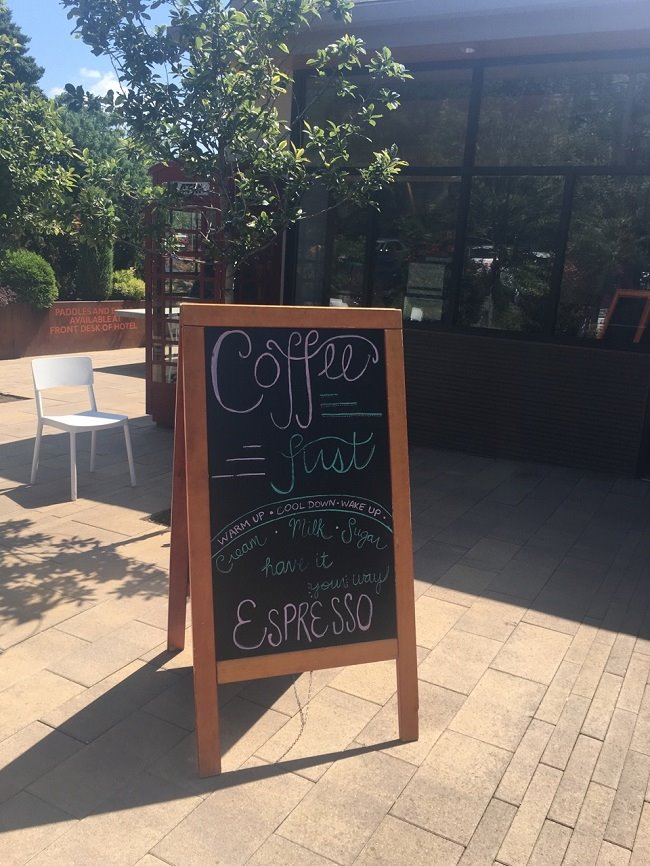 PADDLES AND
AVAILABLE A
FRONT DESK OF HOTEL
Coffee
first
WARM UP • COOL DOWN • WAKE UP •
Cream • Milk • Sugar
have it
your way
ESPRESSO